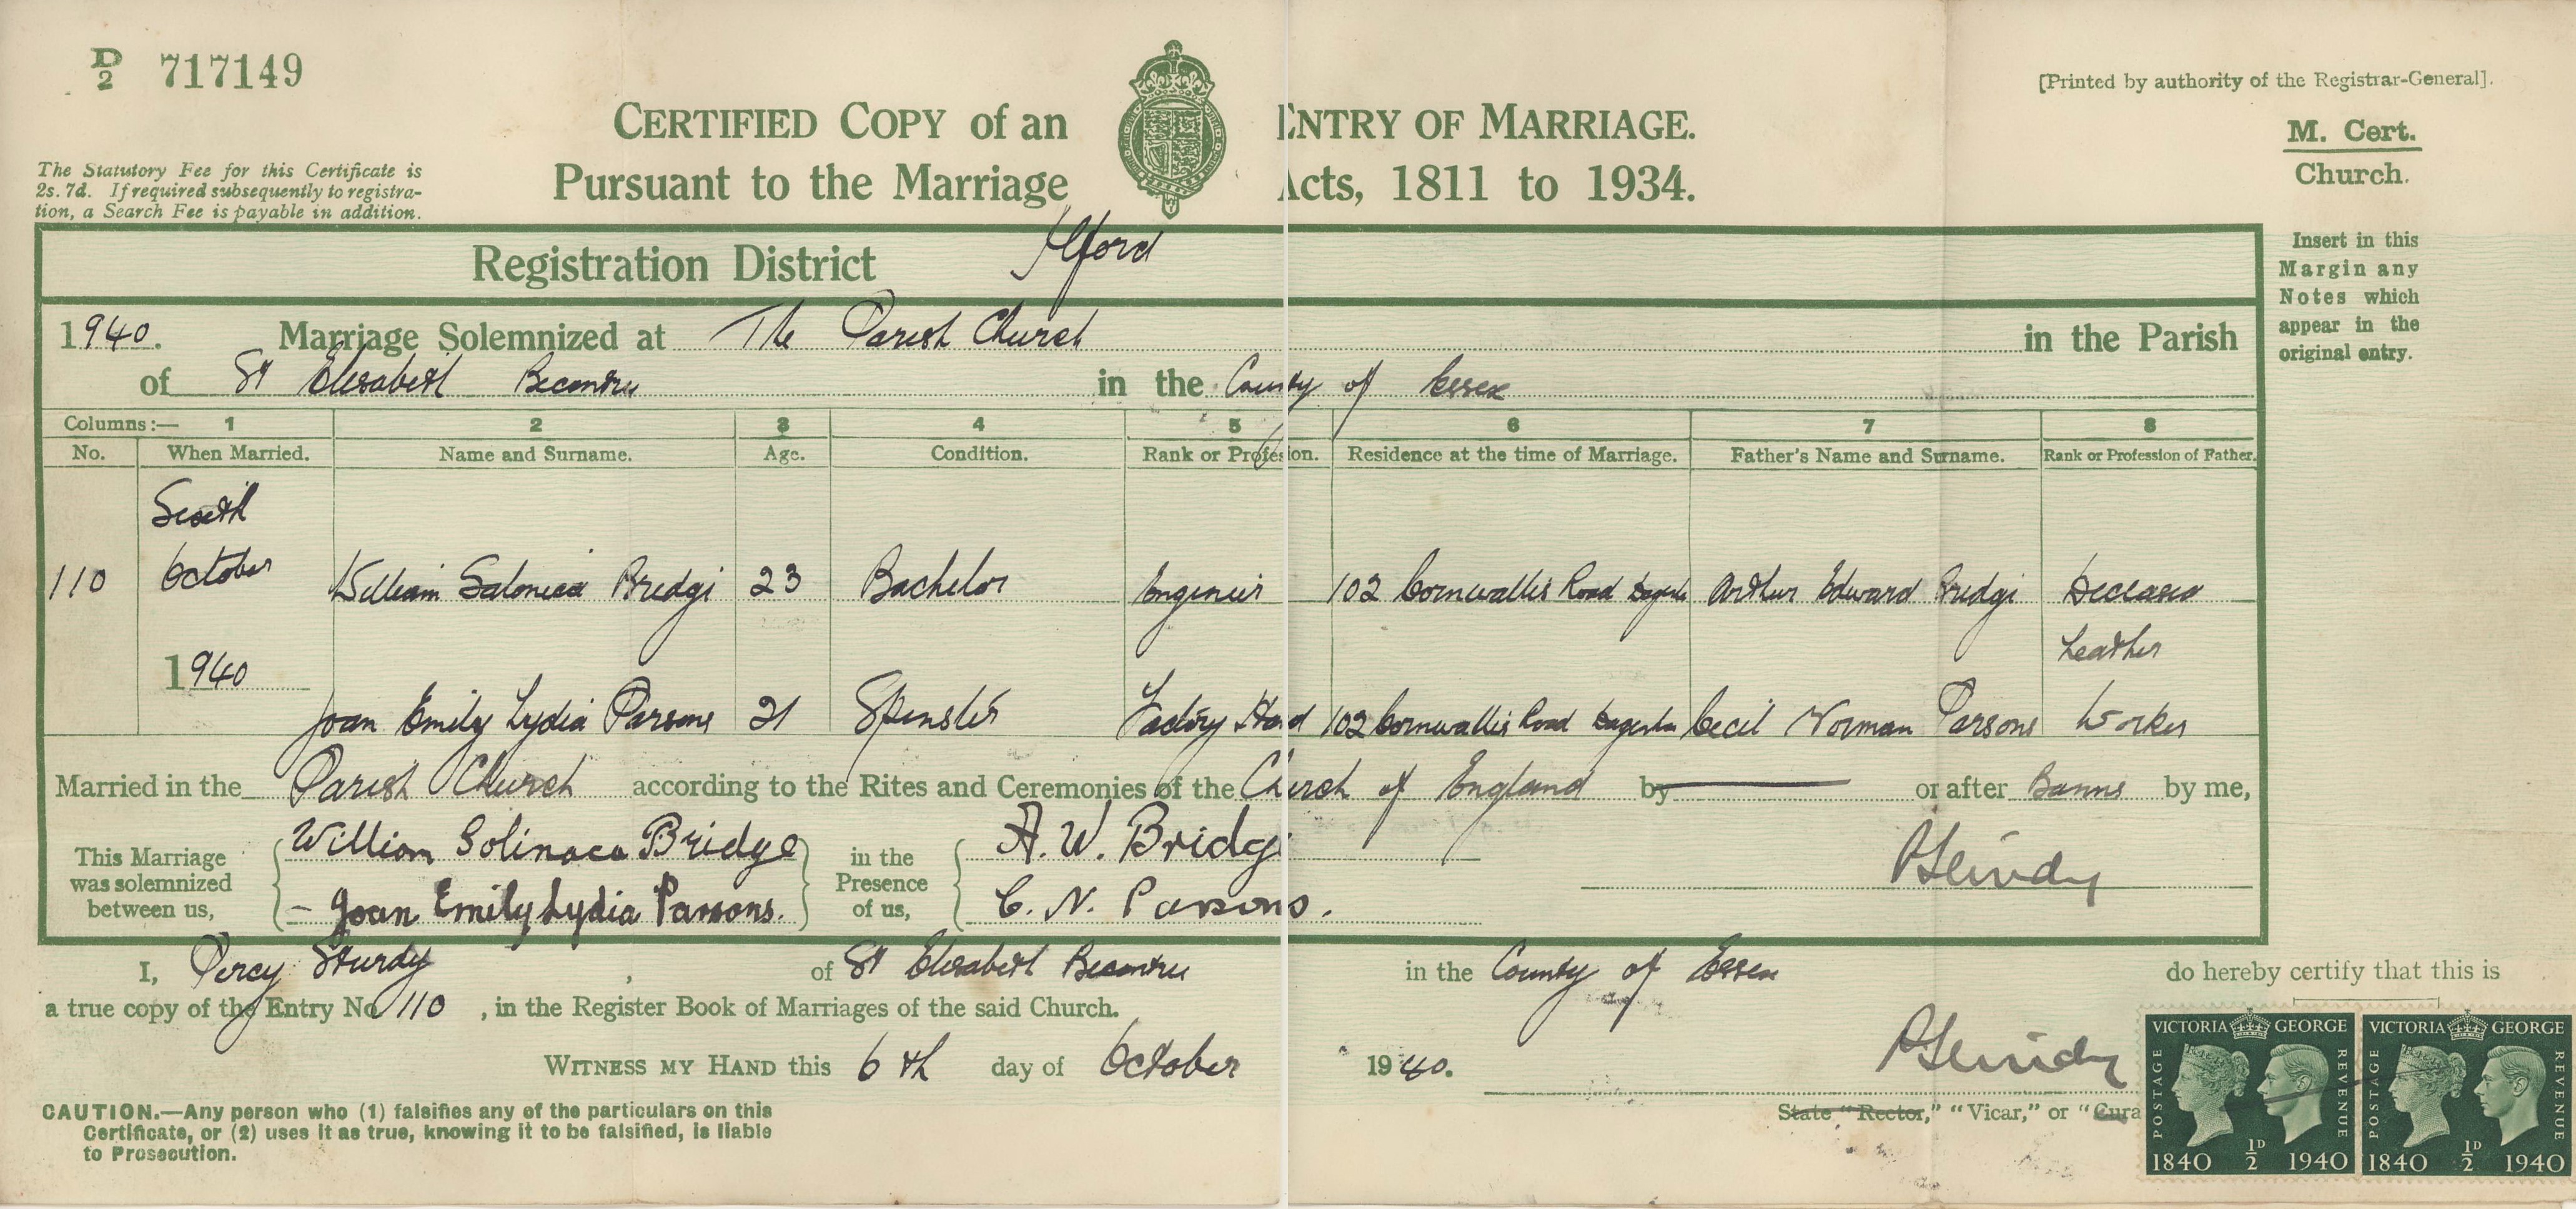 D/2 717149
[Printed by authority of the Registrar-General].
CERTIFIED COPY of an ENTRY OF MARRIAGE.
Pursuant to the Marriage Acts, 1811 to 1934.
M. Cert.
Church.
The Statutory Fee for this Certificate is
2s. 7d. If required subsequently to registra-
tion, a Search Fee is payable in addition.
Insert in this
Margin any
Notes which
appear in the
original entry.
Registration District Ilford
1940. Marriage Solemnized at The Parish Church in the Parish
of St Elisabeth Becontree in the County of Essex
Columns:— 1 2 3 4 5 6 7 8
No. When Married. Name and Surname. Age. Condition. Rank or Profession. Residence at the time of Marriage. Father's Name and Surname. Rank or Profession of Father.
Sixth
110 October William Salonica Bridge 23 Bachelor Engineer 102 Cornwallis Road Arthur Edward Bridge Deceased
1940
Leather
Joan Emily Lydia Parsons 21 Spinster Factory Hand 102 Cornwallis Road Cecil Norman Parsons Worker
Married in the Parish Church according to the Rites and Ceremonies of the Church of England by or after Banns by me,
This Marriage
was solemnized
between us,
William Solinaca Bridge
- Joan Emily Lydia Parsons.
in the
Presence
of us,
A. W. Bridge
C. N. Parsons.
P Sturdy
I, Percy Sturdy, of St Elisabeth Becontree in the County of Essex do hereby certify that this is
a true copy of the Entry No 110, in the Register Book of Marriages of the said Church.
WITNESS MY HAND this 6th day of October 1940.
P Sturdy
State "Rector," "Vicar," or "Cura
CAUTION.—Any person who (1) falsifies any of the particulars on this
Certificate, or (2) uses it as true, knowing it to be falsified, is liable
to Prosecution.
VICTORIA GEORGE
POSTAGE REVENUE
1840 ½D 1940
VICTORIA GEORGE
POSTAGE REVENUE
1840 ½D 1940